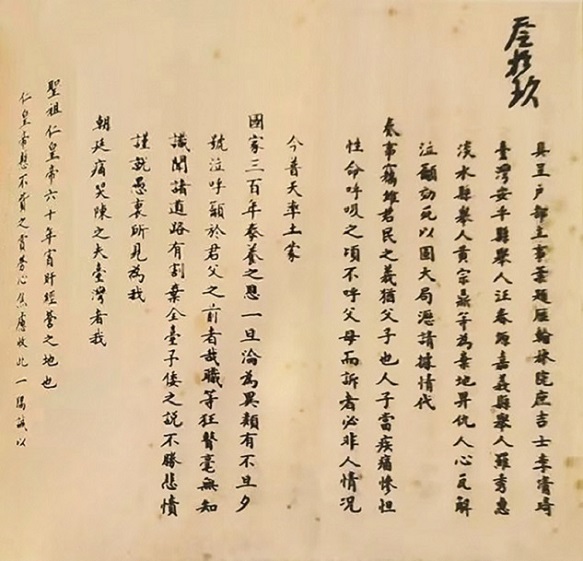 叁拾玖
具呈戶部主事葉題雁翰林院庶吉士李清琦
臺灣安平縣舉人汪春源嘉義縣舉人羅秀惠
淡水縣舉人黃宗鼎等為棄地畀仇人心瓦解
泣籲効死以固大局懇請據情代
奏事竊維君民之義猶父子也人子當疾痛慘怛
性命呼吸之頃不呼父母而訴者必非人情況
今普天率土蒙
國家三百年豢養之恩一旦淪為異類有不旦夕
號泣呼籲於君父之前者哉職等狂瞽毫無知
識聞諸道路有割棄全臺予倭之說不勝悲憤
謹就愚衷所見為我
朝廷痛哭陳之夫臺灣者我
聖祖仁皇帝六十年宵旰經營之地也
仁皇帝懸不貲之賞勞心焦慮收此一隅誠以